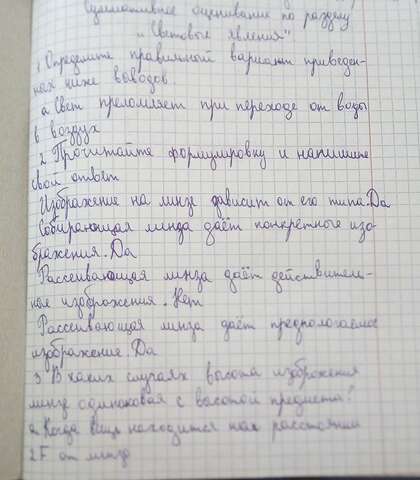 оценивание по разделу
"Световые явления"
1 Определите правильный вариант приведен-
ных ниже выводов
а. Свет преломляет при переходе от воды
в воздух
2 Прочитайте формулировку и напишите
свой ответ
Изображение на линзе зависит от его типа. Да
Собирающая линза даёт конкретные изо-
бражения. Да
Рассеивающая линза даёт действитель-
ное изображения. Нет
Рассеивающая линза даёт предпологаемое
изображение. Да
3 В каких случаях высота изображения
линз одинаковая с высотой предмета?
а. Когда вещь находится на расстоянии
2F от линз